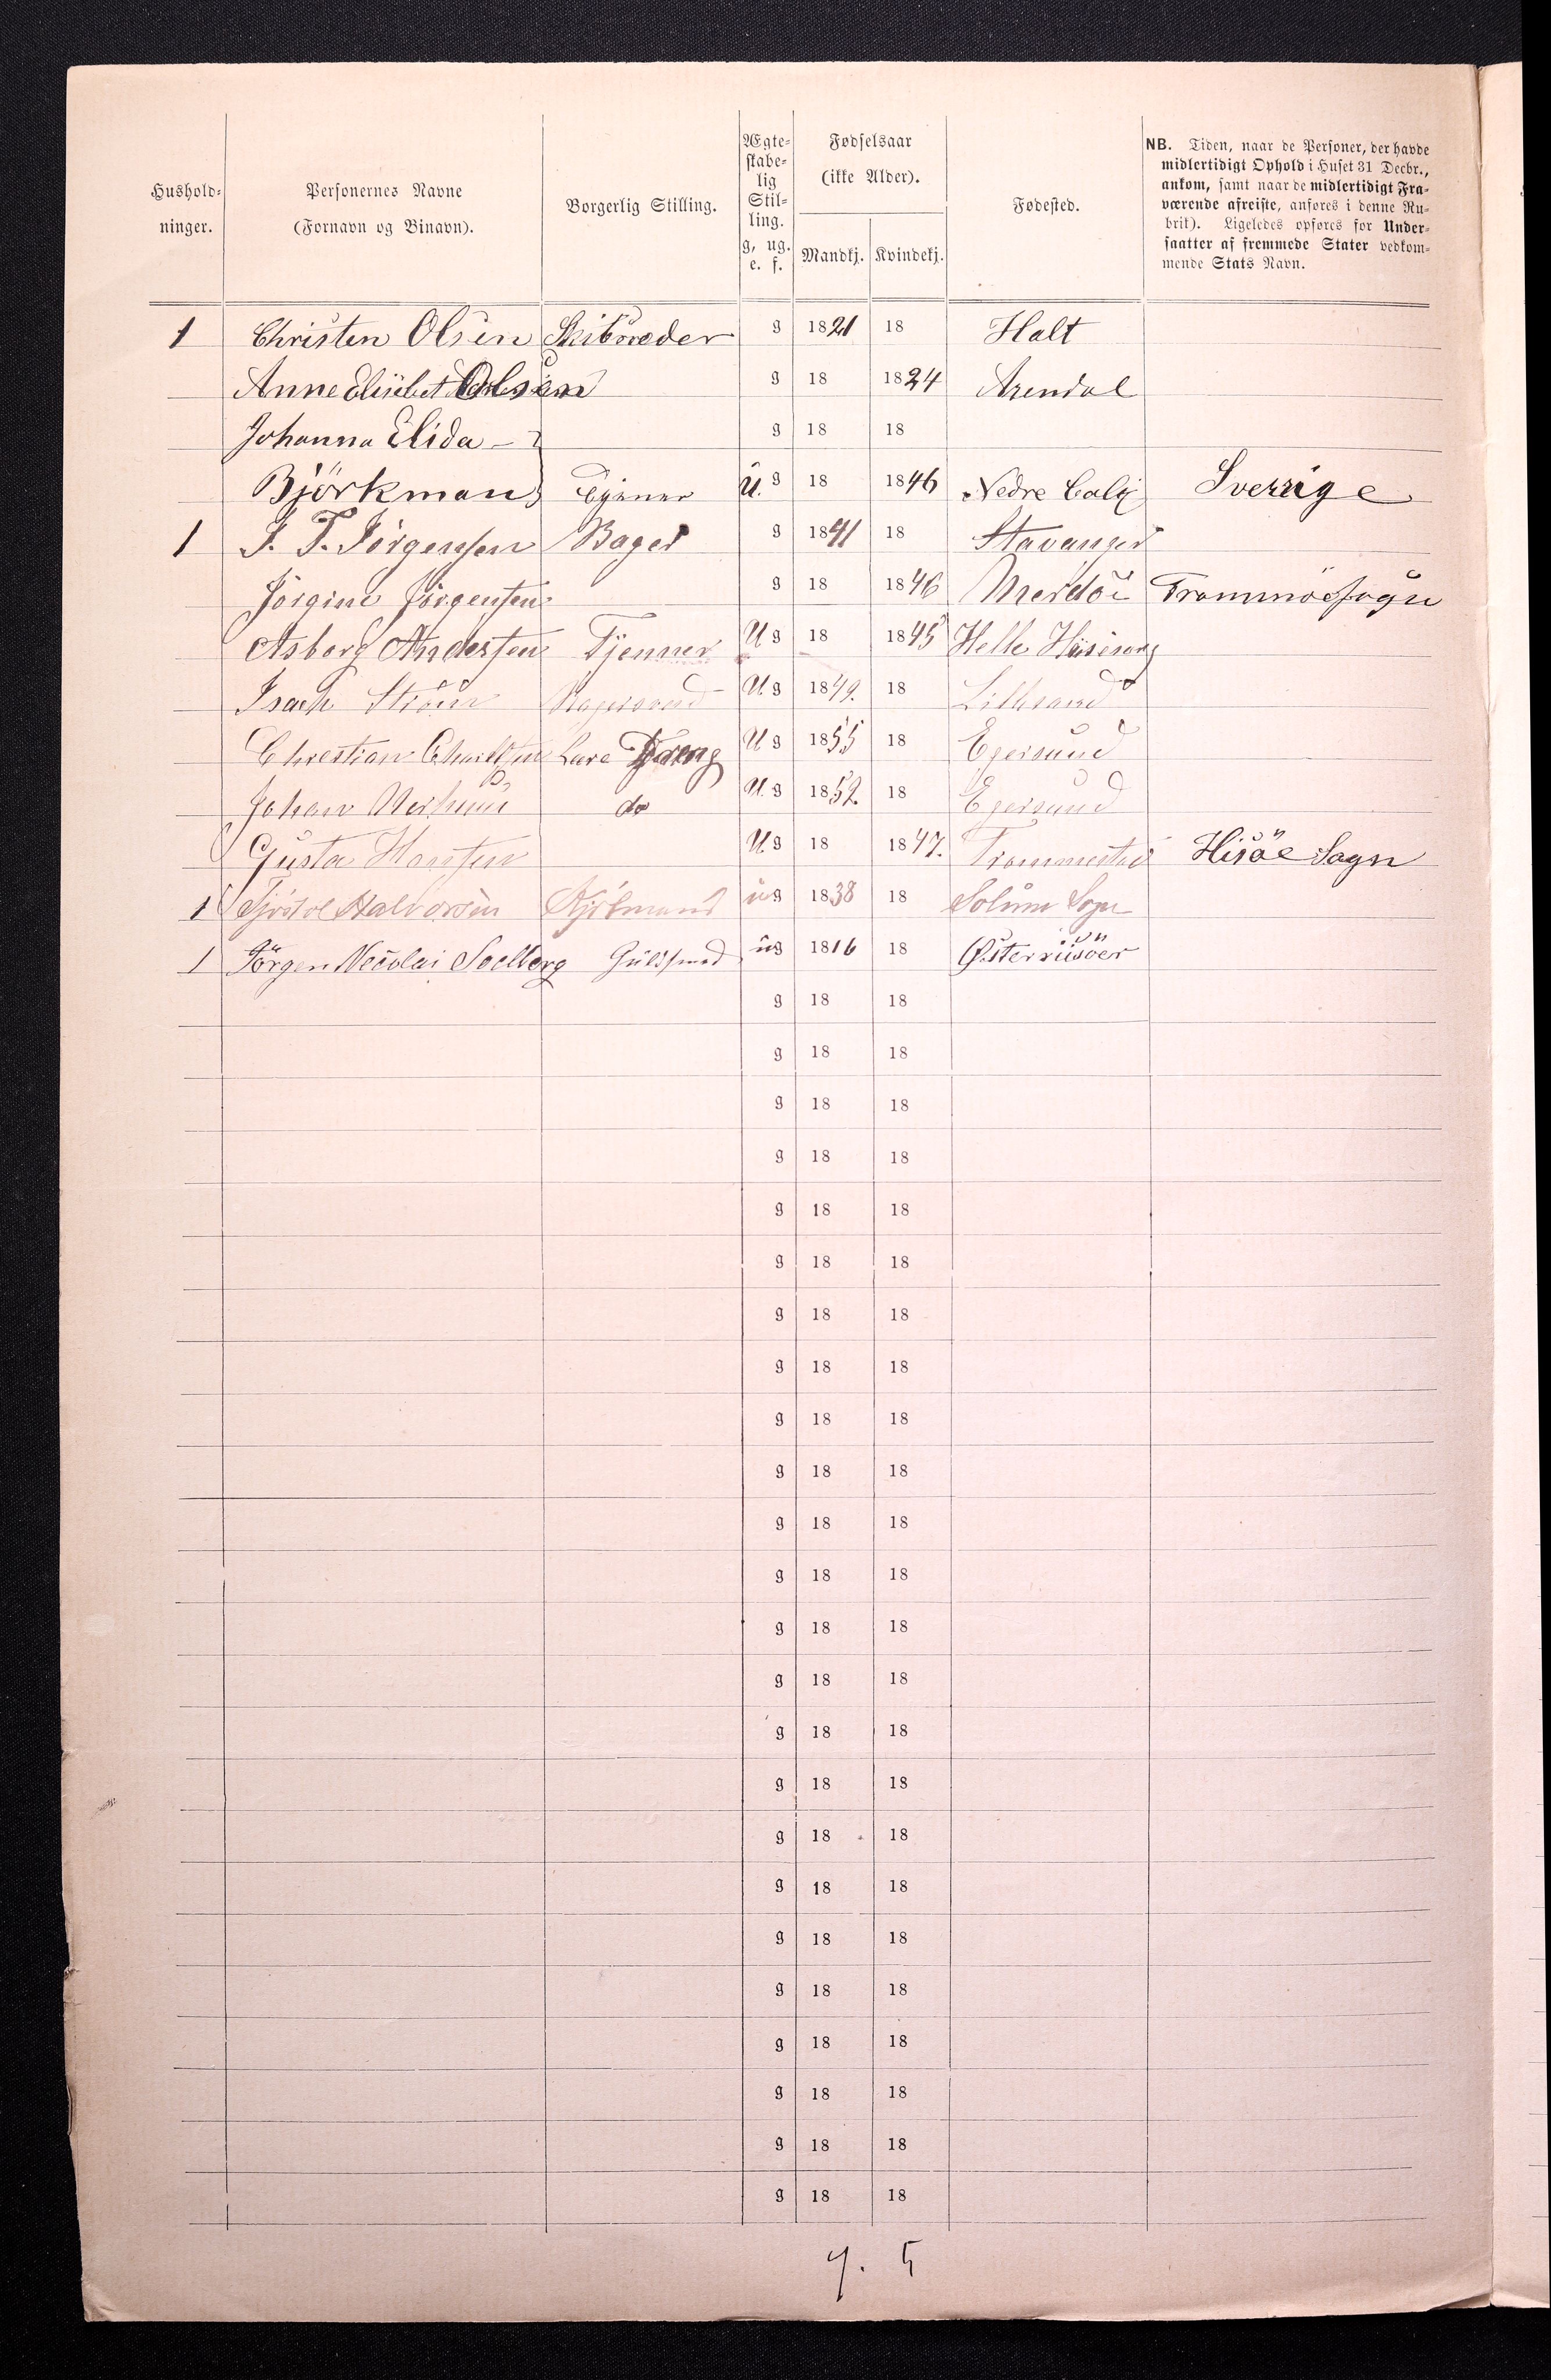 Hushold-
ninger.
Personernes Navne
(Fornavn og Binavn).
Borgerlig Stilling.
Ægte-
skabe-
lig
Stil-
ling.
g, ug.
e. f.
Fødselsaar
(ikke Alder).
Mandkj. Kvindekj.
Fødested.
NB. Tiden, naar de Personer, der havde
midlertidigt Ophold i Huset 31 Decbr.,
ankom, samt naar de midlertidigt Fra-
værende afreiste, anføres i denne Ru-
brik). Ligeledes opføres for Under-
saatter af fremmede Stater vedkom-
mende Stats Navn.
1 Christen Olsen Skibsreder g 1821 18 Holt
Anne Elisebet Olsen g 18 1824 Arendal
Johanna Elida g 18 18
Björkman Tjener U. g 18 1846 Nedre Sverige
1 J. T. Jörgensen Bager g 1841 18 Stavanger
Jörgine Jörgensen g 18 1846 Merdöe Trommöe sogn
Asborg Andersen Tjenner U g 18 1845 Helle
Isach Ström U. g 1849. 18 Lillesand
Chrestian Lære Dreng U g 1855 18 Egersund
Johan do U. g 1852. 18 Egersund
Gusta Hansen U. g 18 1847. Trommestad Hisöe Sogn
1 Halvorsen Kjöbmand ug 1838 18 Solum Sogn
1 Jörgen Necolai Soelberg Guldsmed ug 1816 18 Østerriisöer
g 18 18
g 18 18
g 18 18
g 18 18
g 18 18
g 18 18
g 18 18
g 18 18
g 18 18
g 18 18
g 18 18
g 18 18
g 18 18
g 18 18
g 18 18
g 18 18
g 18 18
g 18 18
g 18 18
g 18 18
g 18 18
g 18 18
g 18 18
g 18 18